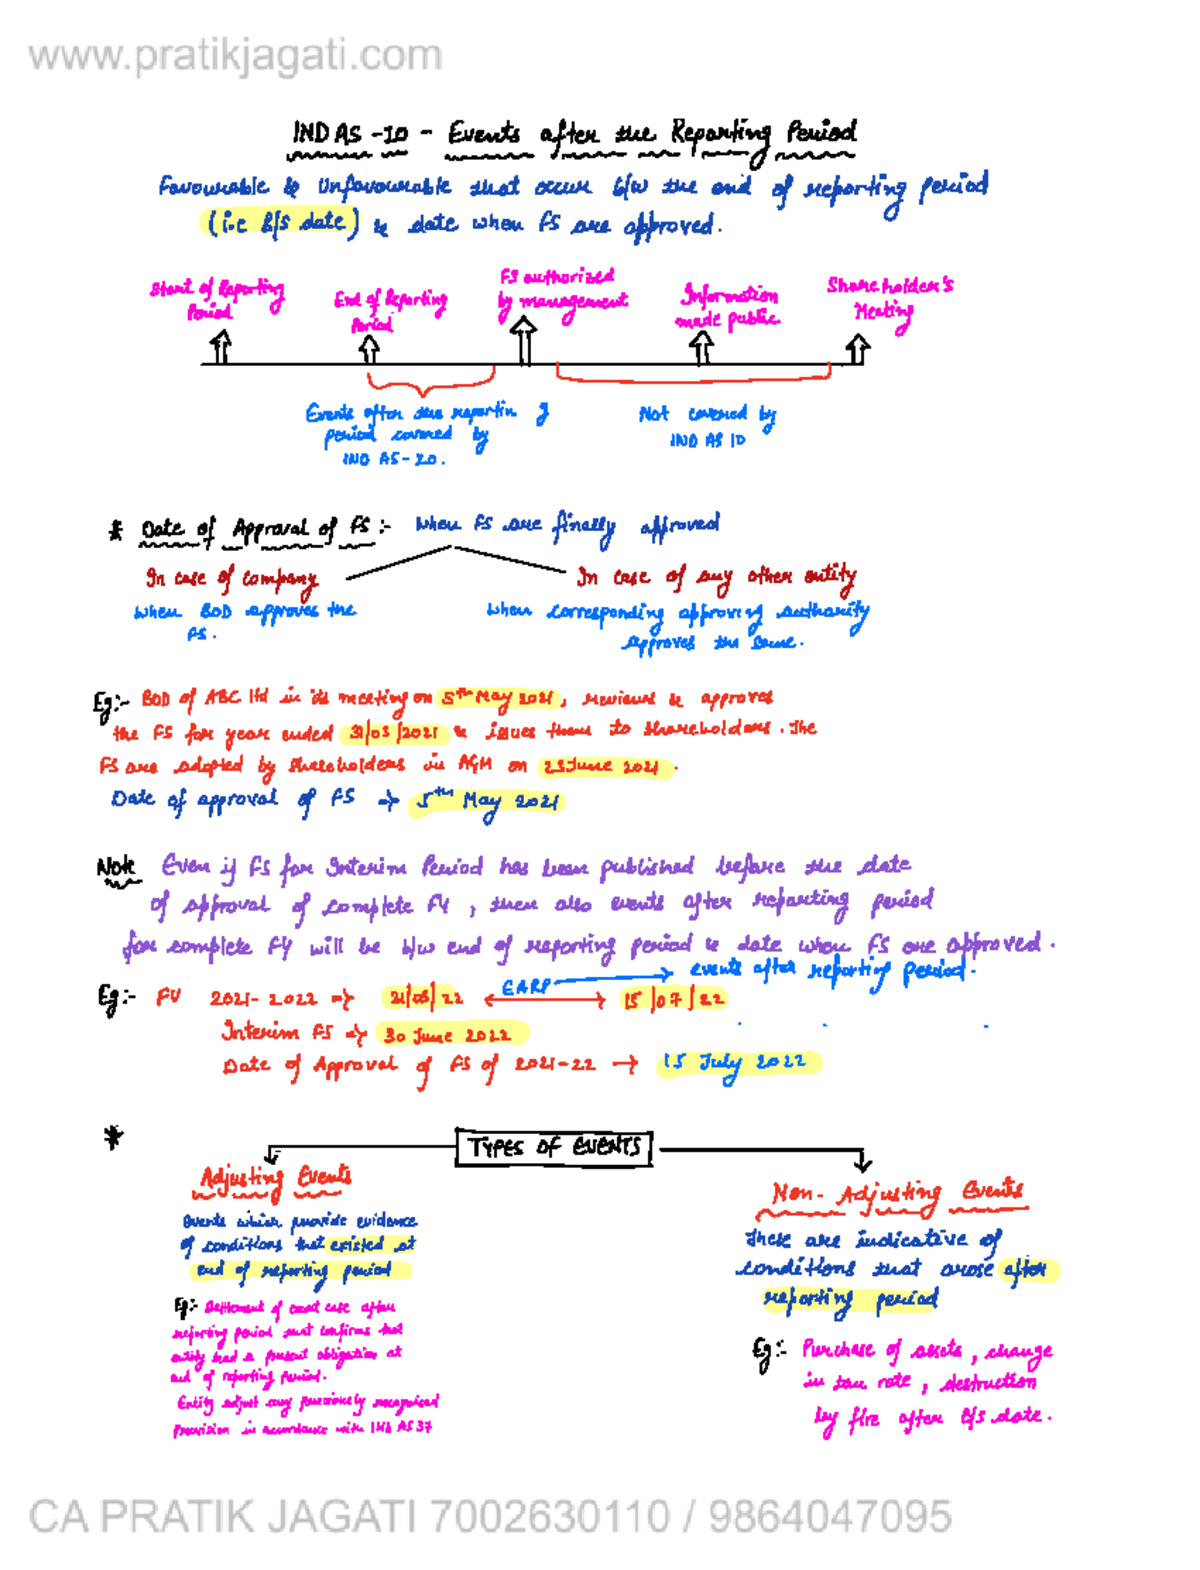 www.pratikjagati.com
IND AS -10 - Events after the Reporting Period
Favourable & Unfavourable that occur b/w the end of reporting period
(i.e B/S date) & date when FS are approved.
Start of Reporting Period
End of Reporting Period
FS authorized by management
Information made public
Shareholder's Meeting
Events after the reporting
period covered by
IND AS-10.
Not covered by
IND AS 10
* Date of Approval of FS :- When FS are finally approved
In case of company
In case of any other entity
When BOD approves the
FS.
When corresponding approving authority
approves the same.
Eg:- BOD of ABC ltd in its meeting on 5th May 2021, reviews & approves
the FS for year ended 31/03/2021 & issues them to shareholders. The
FS are adopted by shareholders in AGM on 23 June 2021.
Date of approval of FS → 5th May 2021
Note Even if FS for Interim Period has been published before the date
of approval of complete FY, then also events after reporting period
for complete FY will be b/w end of reporting period & date when FS are approved.
events after reporting period.
Eg:- FV 2021-2022 → 31/03/22 EARP 15/07/22
Interim FS → 30 June 2022
Date of Approval of FS of 2021-22 → 15 July 2022
* TYPES OF EVENTS
Adjusting Events
Events which provide evidence
of conditions that existed at
end of reporting period
Eg:- Settlement of court case after
reporting period that confirms that
entity had a present obligation at
end of reporting period.
Entity adjust any previously recognised
provision in accordance with IND AS 37
Non-Adjusting Events
These are indicative of
conditions that arose after
reporting period
Eg:- Purchase of assets, change
in tax rate, destruction
by fire after B/S date.
CA PRATIK JAGATI 7002630110 / 9864047095